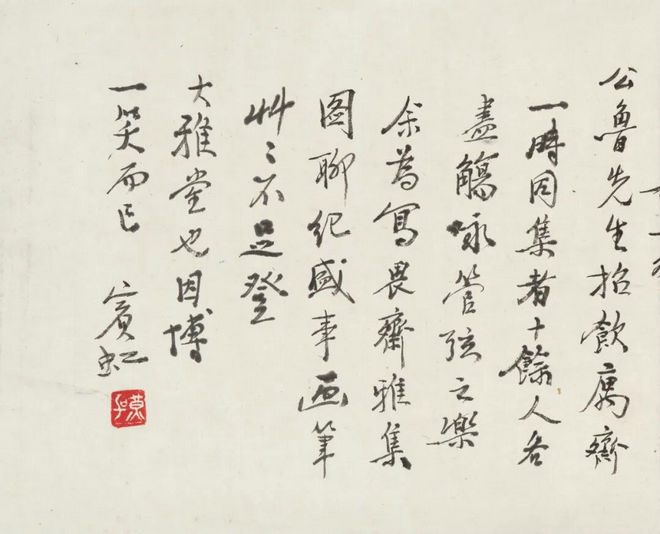 公魯先生招飲厲齋
一時同集者十餘人各
盡觴詠管弦之樂
余為寫畏齋雅集
图聊紀盛事画筆
艸〻不足登
大雅堂也因博
一笑而已
賓虹